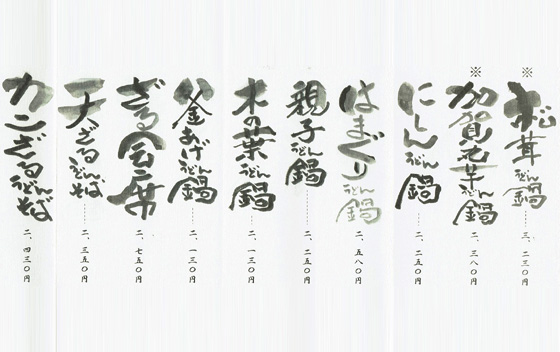 ※松茸うどん鍋……三、二三〇円
※加賀芋うどん鍋……二、三八〇円
にしんうどん鍋……二、二五〇円
はまぐりうどん鍋……二、五八〇円
親子うどん鍋……二、二五〇円
木の葉うどん鍋……二、一三〇円
釜あげうどん鍋……二、一三〇円
ざる会席……二、七五〇円
天ざるうどんそば……二、三五〇円
カニざるうどんそば……二、四三〇円